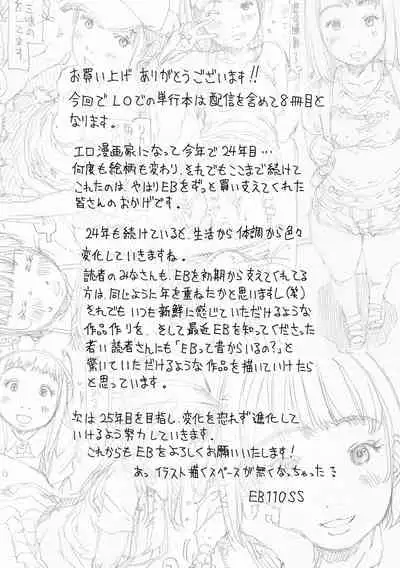 お買い上げ ありがとうございます!!
今回でLOでの単行本は配信を含めて8冊目と
なります。
エロ漫画家になって今年で24年目…
何度も絵柄も変わり、それでもここまで続けて
これたのは、やはりEBをずっと買い支えてくれた
皆さんのおかげです。
24年も続けていると、生活から体調から色々
変化していきますね。
読者のみなさんも、EBを初期から支えてくれてる
方は、同じように年を重ねたかと思いますし(笑)
それでも いつも新鮮に感じていただけるような
作品作りを、そして最近EBを知ってくださった
若い読者さんにも「EBって昔からいるの?」と
驚いていただけるような作品を描いていけたら
と思っています。
次は25年目を目指し、変化を恐れず進化して
いけるよう努力していきます。
これからもEBをよろしくお願いいたします!
あっ イラスト描くスペースが無くなっちゃった
EB110SS